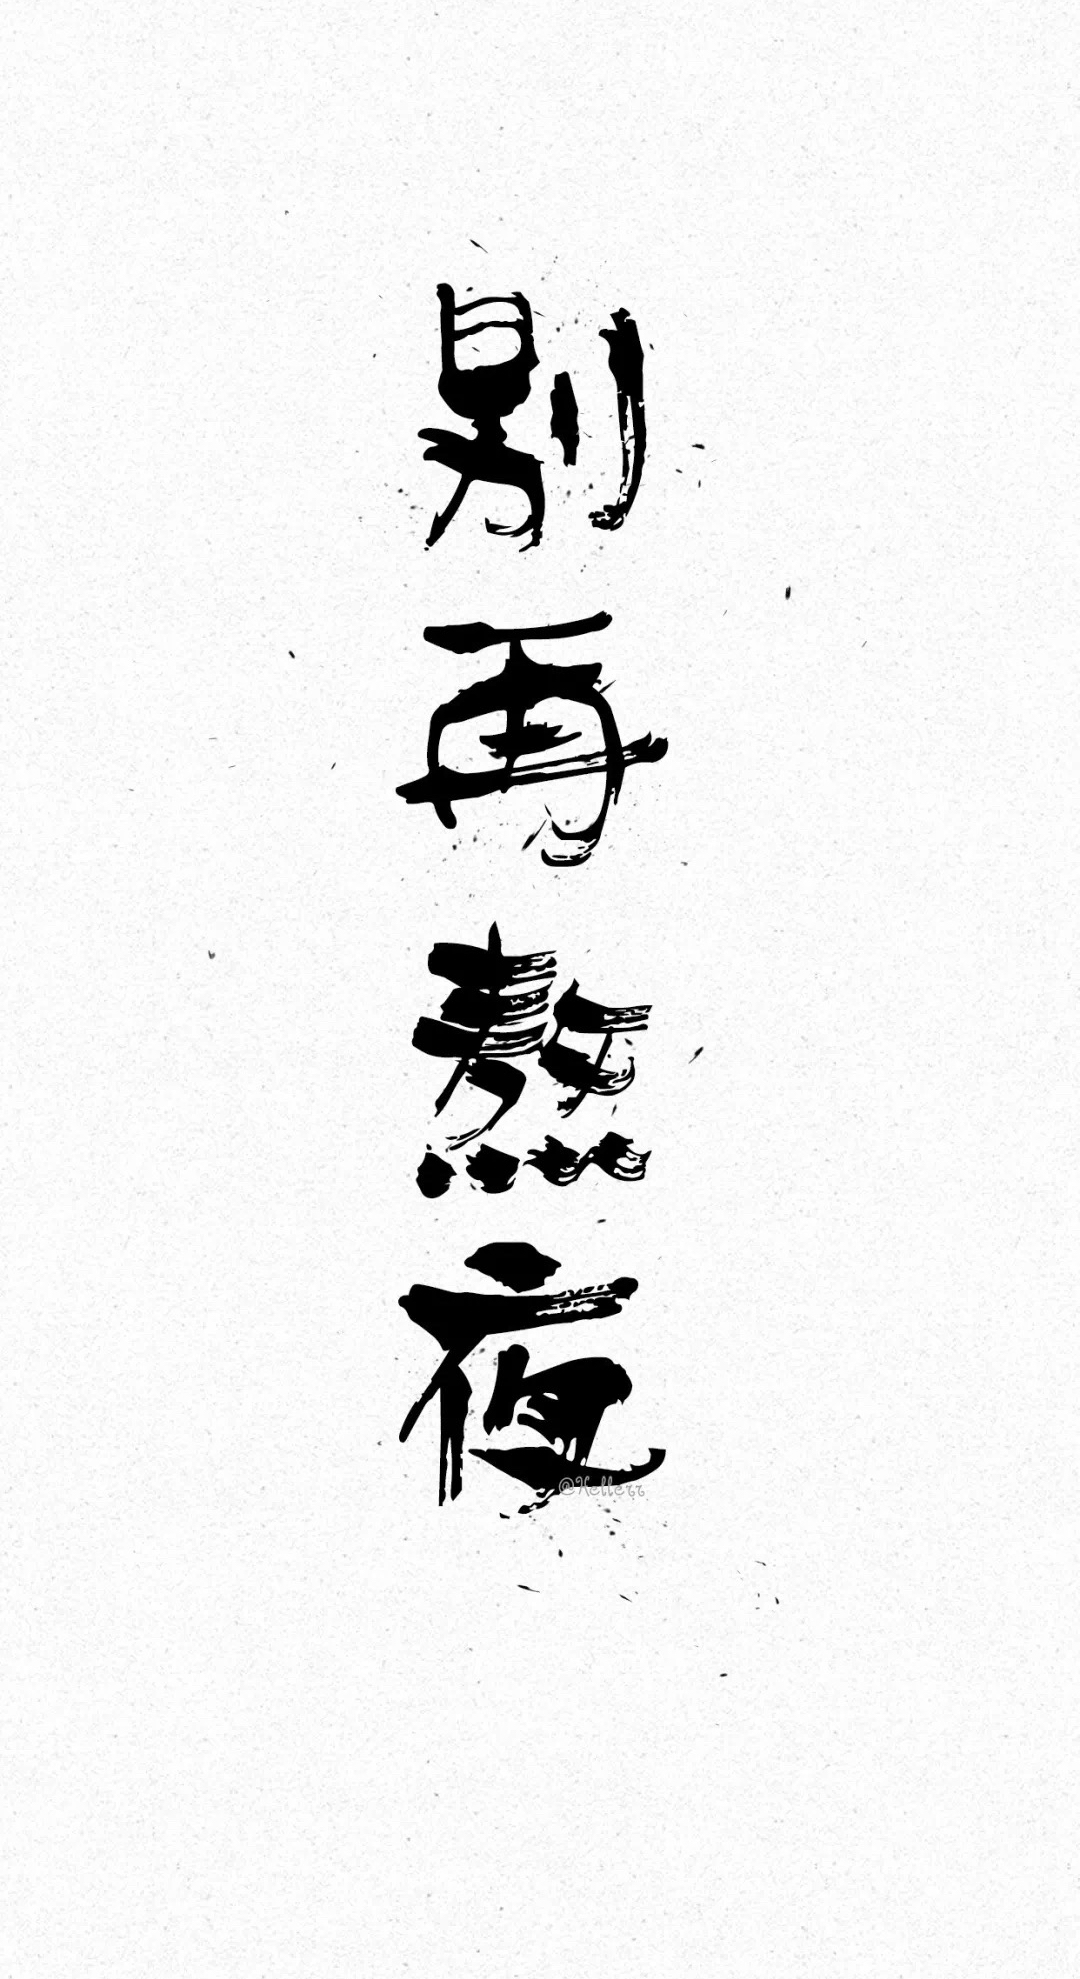 别再熬夜
@Hellerr